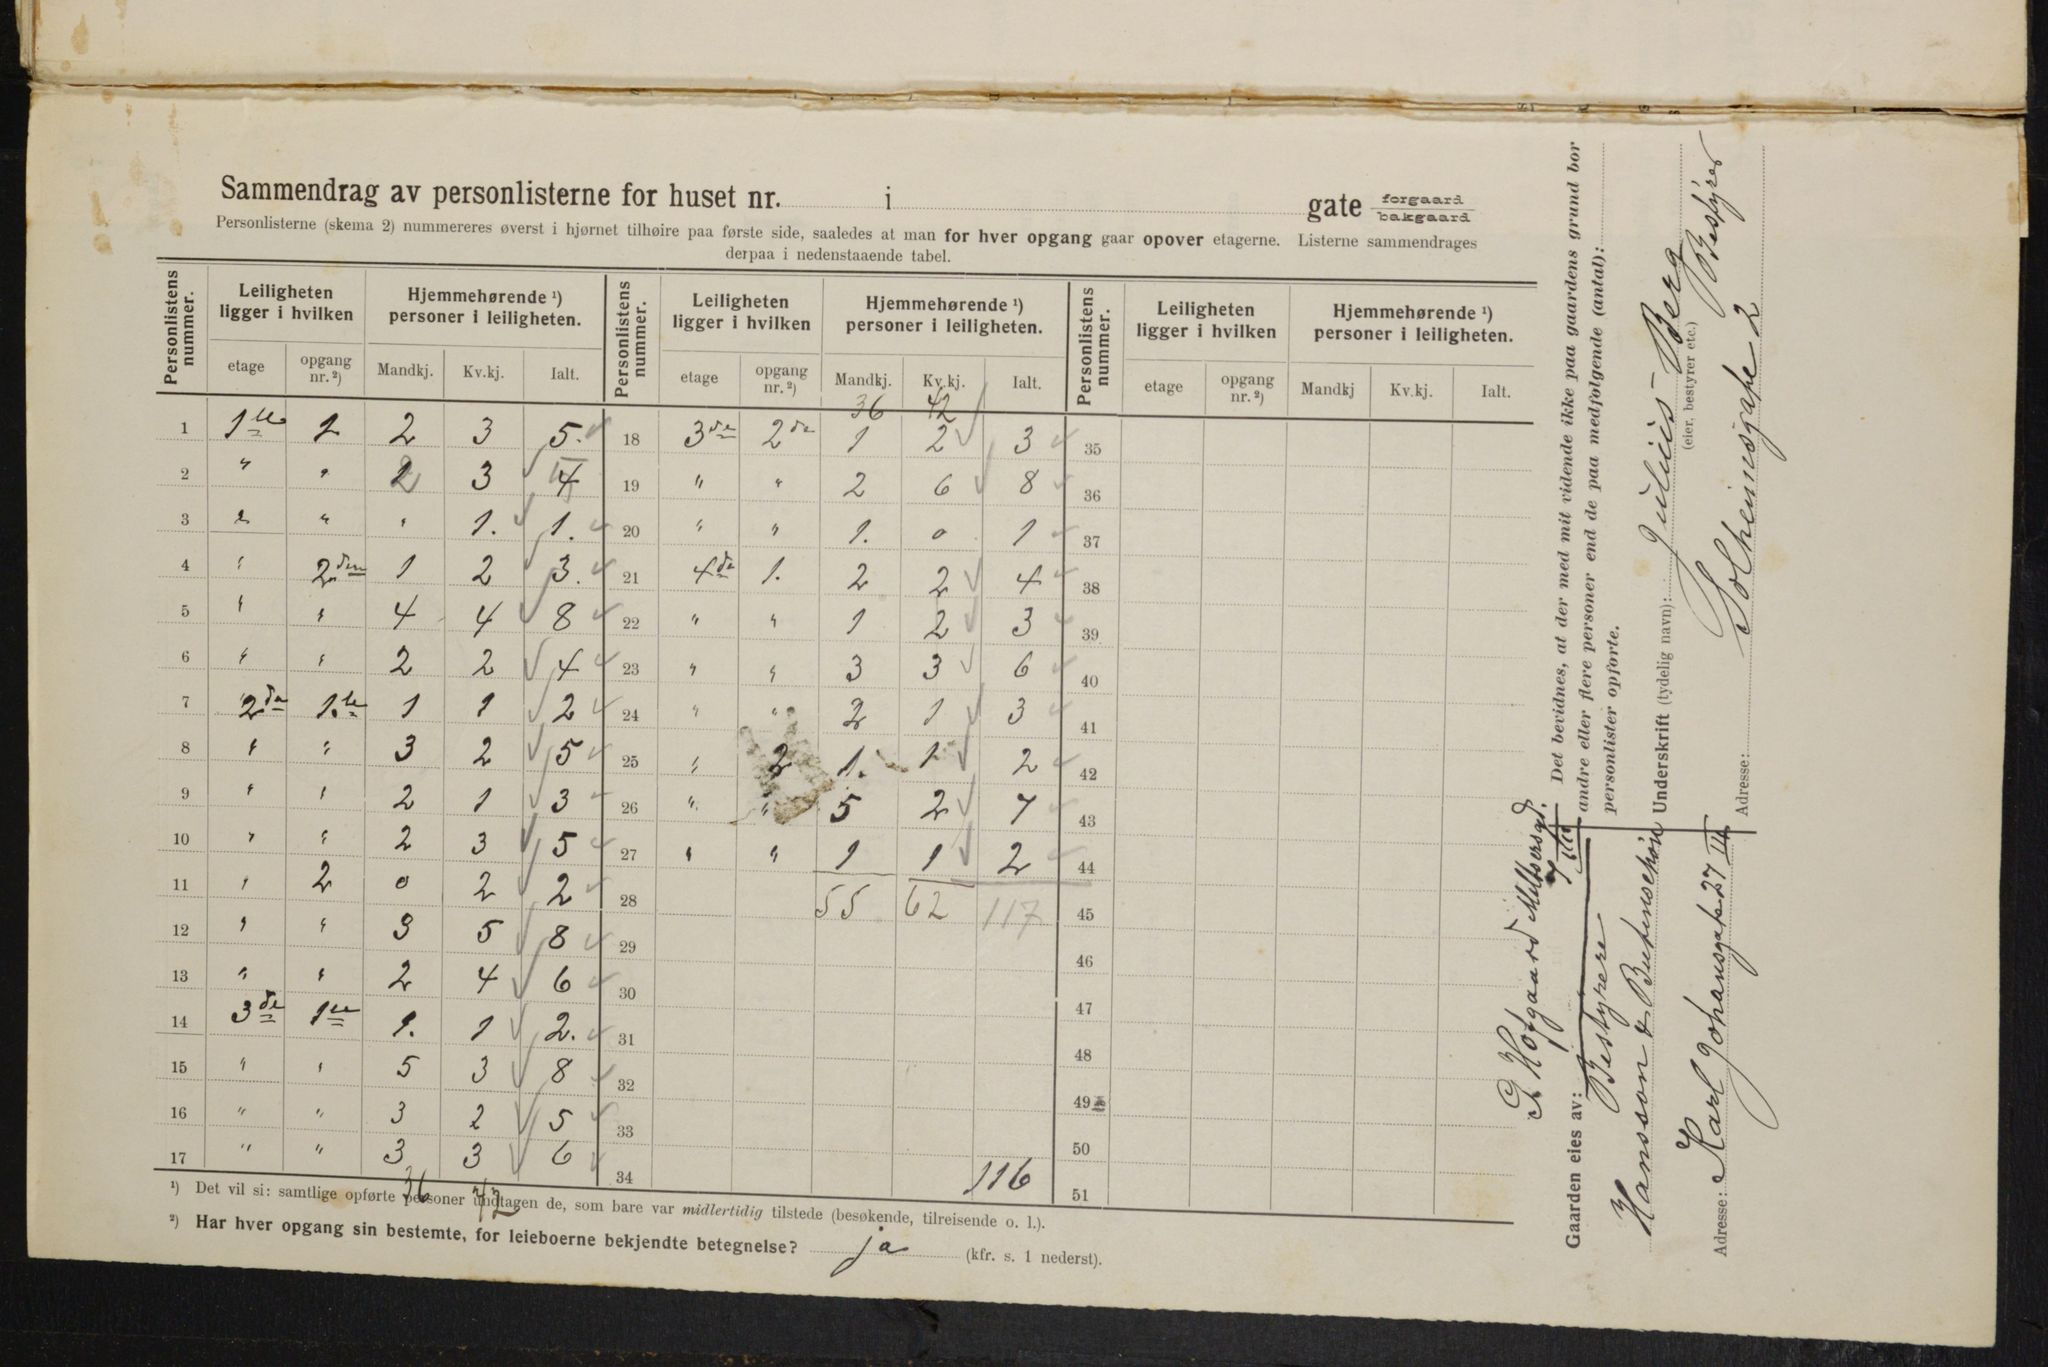 Sammendrag av personlisterne for huset nr. i gate forgaard
bakgaard
Personlisterne (skema 2) nummereres øverst i hjørnet tilhøire paa første side, saaledes at man for hver opgang gaar opover etagerne. Listerne sammendrages
derpaa i nedenstaaende tabel.
Personlistens nummer. Leiligheten ligger i hvilken Hjemmehørende ¹) personer i leiligheten. Personlistens nummer. Leiligheten ligger i hvilken Hjemmehørende ¹) personer i leiligheten. Personlistens nummer. Leiligheten ligger i hvilken Hjemmehørende ¹) personer i leiligheten.
etage opgang nr. ²) Mandkj. Kv.kj. Ialt. etage opgang nr. ²) Mandkj. Kv.kj. Ialt. etage opgang nr. ²) Mandkj Kv.kj. Ialt.
36 42
1 1ste 1 2 3 5. 18 3de 2de 1 2 3 35
2 " " 2 3 4 19 " " 2 6 8 36
3 " " " 1. 1. 20 " " 1. 0 1 37
4 " 2den 1 2 3. 21 4de 1. 2 2 4 38
5 " " 4 4 8 22 " " 1 2 3 39
6 " " 2 2 4 23 " " 3 3 6 40
7 2de 1.ste 1 1 2 24 " " 2 1 3 41
8 " " 3 2 5 25 " 2 1. 1 2 42
9 " " 2 1 3 26 " " 5 2 7 43
10 " " 2 3 5 27 " " 1 1 2 44
11 " 2 0 2 2 28 55 62 117 45
12 " " 3 5 8 29 46
13 " " 2 4 6 30 47
14 3de 1ste 1. 1 2. 31 48
15 " " 5 3 8 32 49
16 " " 3 2 5 33 50
17 " " 3 3 6 34 116 51
36 42
¹) Det vil si: samtlige opførte personer undtagen de, som bare var midlertidig tilstede (besøkende, tilreisende o. l.).
²) Har hver opgang sin bestemte, for leieboerne bekjendte betegnelse? ja (kfr. s. 1 nederst).
Det bevidnes, at der med mit vidende ikke paa gaardens grund bor
andre eller flere personer end de paa medfølgende (antal):
personlister opførte.
Underskrift (tydelig navn): Julius Berg Bestyrer
(eier, bestyrer etc.)
Adresse: Solheimsgate 2
Hofgaard
Gaarden eies av:
Bestyrere
Hansson & Butenschøn
Adresse: Karl Johansgate 27 III